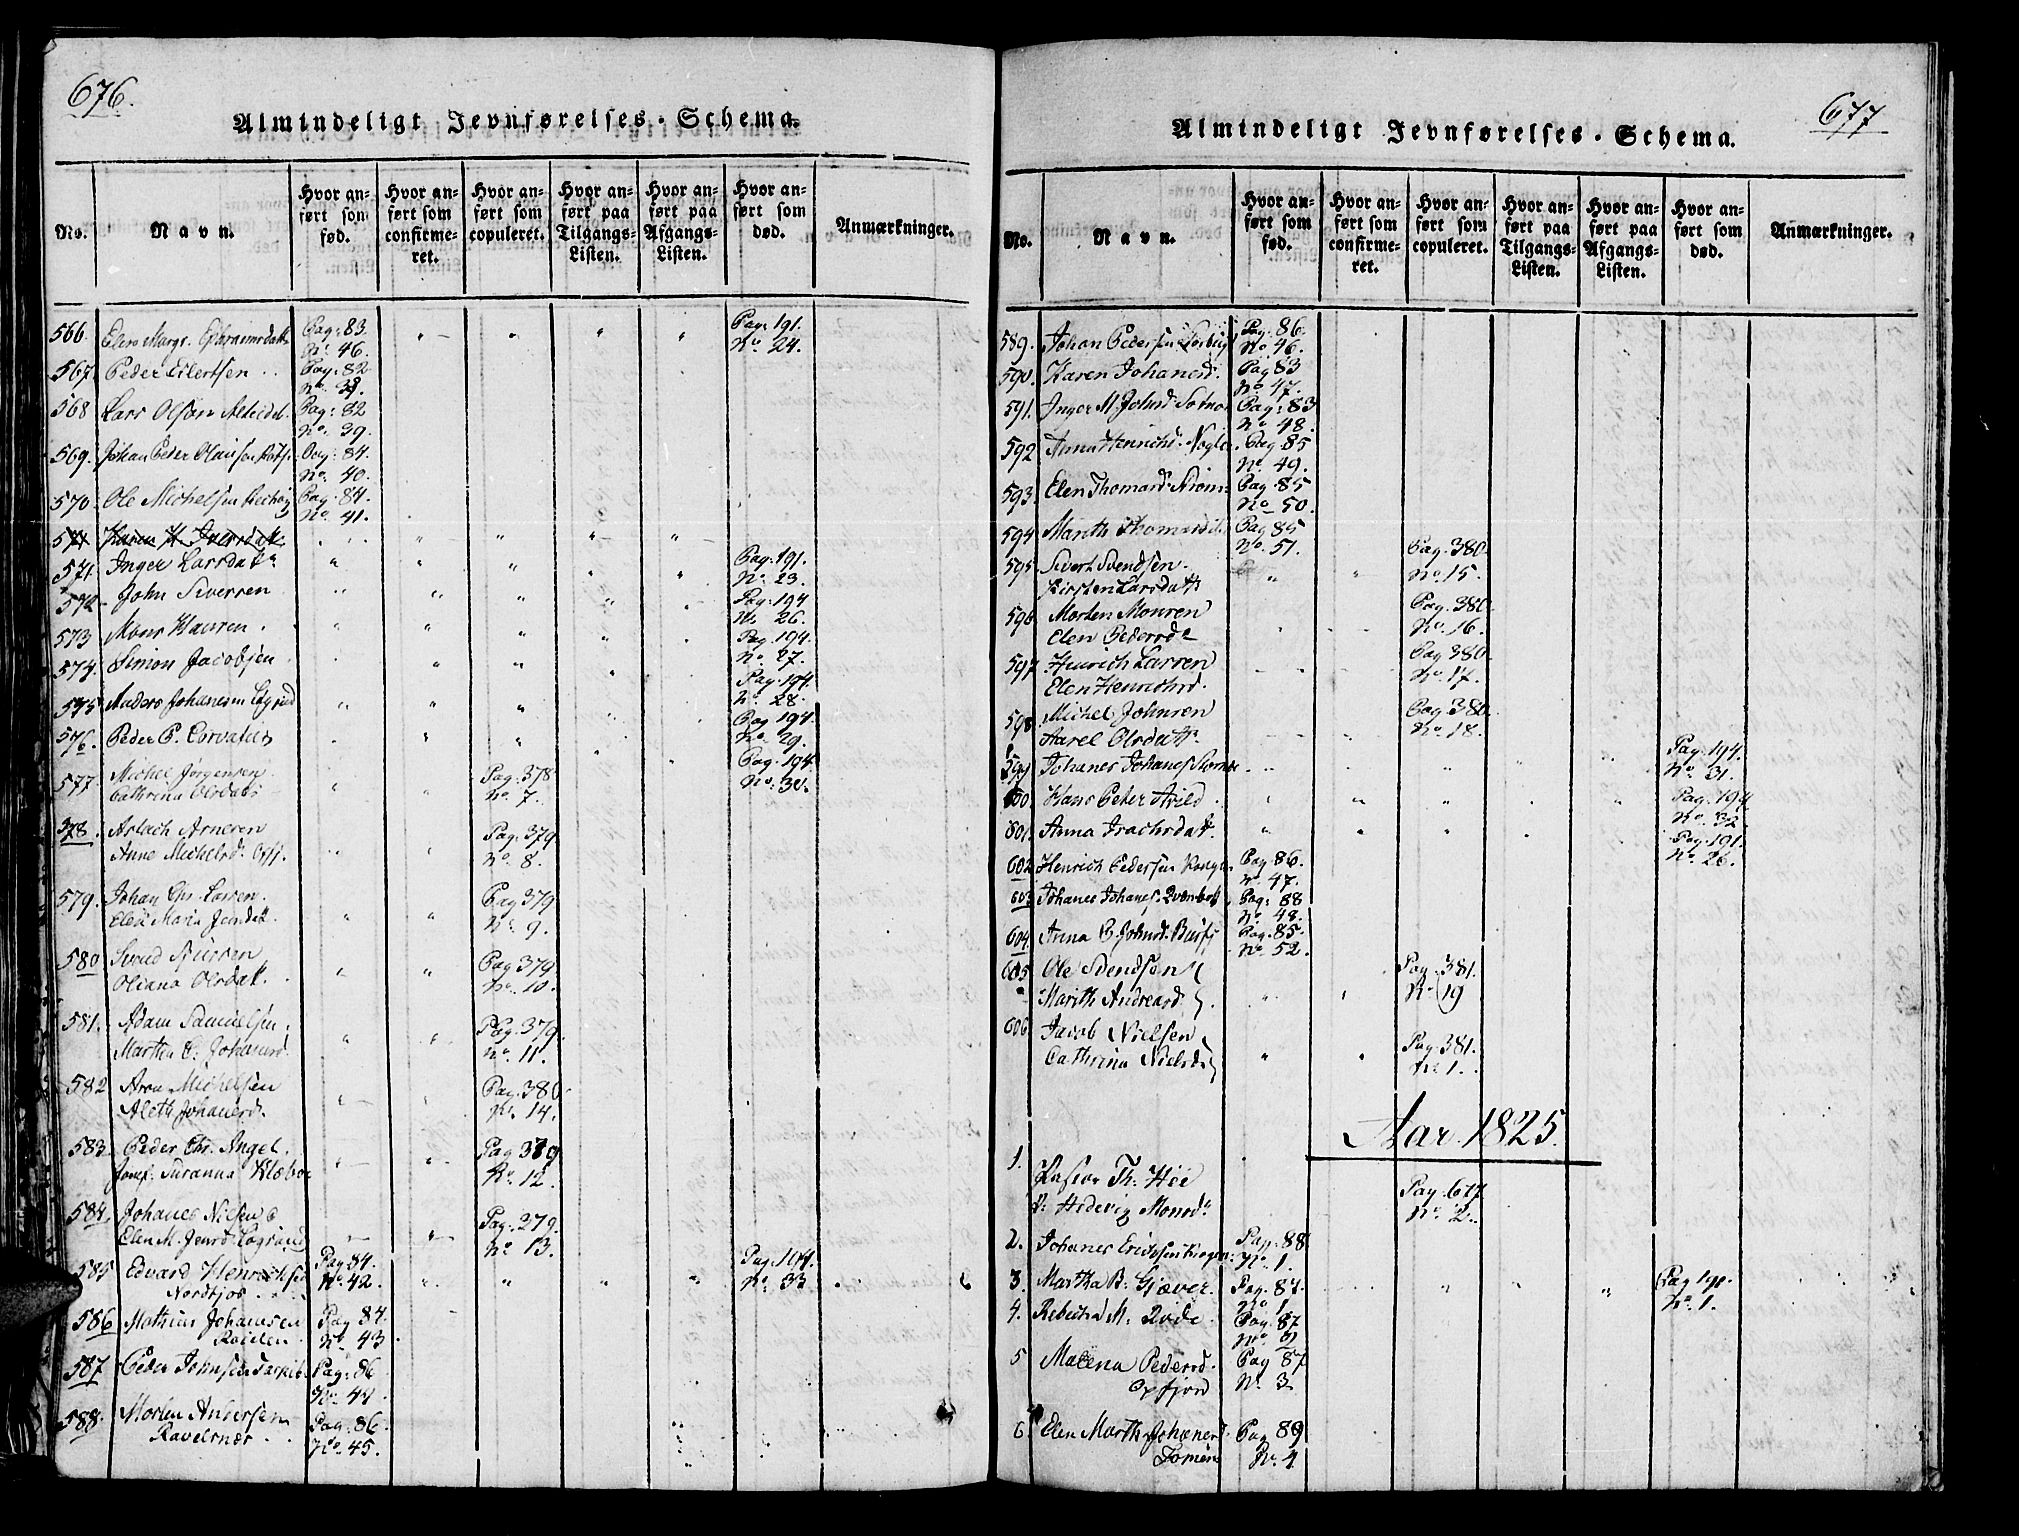 676.
Almindeligt Jevnførelses-Schema.
No.
Navn.
Hvor anført som fød.
Hvor anført som confirmeret.
Hvor anført som copuleret.
Hvor anført paa Tilgangs-Listen.
Hvor anført paa Afgangs-Listen.
Hvor anført som død.
Anmærkninger.
566. Elen Margr. Ephraimsdatt Pag: 83. No. 46. Pag: 191. No. 24.
567. Peder Eilertsen Pag: 82
568 Lars Olsen Pag: 82 No. 39.
569. Johan Peder Olausen Pag: 84. No. 40.
570. Ole Michelsen Pag: 84. No. 41.
571. Inger Larsdatr Pag: 191. No. 23.
572 John Siversen Pag: 194 No 26.
573 Mons Hansen Pag 194. No. 27.
574. Simon Jacobsen Pag. 194. No. 28.
575 Anders Johanesen Pag 194. No. 29.
576. Peder P. Pag. 194. No. 30.
577 Michel Jørgensen Pag. 378
Cathrina Olsdatr No. 7.
578. Aslach Arnesen Pag. 379
Anne Michelsd. No. 8.
579. Johan Chr. Larsen Pag 379
Elen Maria Jensdatt. No. 9.
580 Svend Pag 379
Oliana Olsdatt. No. 10.
581. Adam Samuelsen Pag. 379.
Martha C. Johansd. No. 11.
582 Aron Michelsen Pag. 380
Aleth Johansd. No. 14.
583. Peder Chr. Angel. Pag 379
Josef: Susanna Klæboe No. 12.
584. Johanes Nielsen Pag. 379.
Elen M. Jensd. No. 13.
585 Edvard Henrichsen Pag 84. No. 42. Pag. 194. No. 33
586 Mathias Johansen Pag 84. No. 43
587 Peder Johnsen Pag: 86. No. 44
588. Morten Andersen Pag: 86.
No. 45.
677
Almindeligt Jevnførelses-Schema.
No.
Navn.
Hvor anført som fød.
Hvor anført som confirmeret.
Hvor anført som copuleret.
Hvor anført paa Tilgangs-Listen.
Hvor anført paa Afgangs-Listen.
Hvor anført som død.
Anmærkninger.
589. Johan Pedersen Pag. 86. No 46.
590. Karen Johanesd. Pag 83 No 47.
591. Inger M. Johnsd. Pag: 83 No. 48.
592 Anna Henrichsd. Pag 85 No. 49.
593. Elen Thomasd. Pag: 85 No. 50.
594 Marith Thomasd. Pag 85 No. 51.
595. Sivert Svendsen. Pag. 380
Kirsten Larsdatt No. 15.
596 Morten Monsen Pag. 380
Elen Pedersd. No. 16.
597. Henrich Larsen Pag 380
Elen Henrichsd. No. 17.
598. Michel Johnsen Pag 380
Karel Olsdatt. No. 18.
599 Johanes Johanes Pag. 194. No. 31.
600. Hans Peter Pag. 194 No. 32
601. Anna Pag. 191. No. 26.
602. Henrich Pedersen Pag. 86. No 47.
603 Johanes Johanes. Pag: 88 No. 48.
604. Anna C. Johnsd. Pag. 85. No. 52.
605 Ole Svendsen Pag. 381.
Marith Andreasd. No. 19
606 Jacob Nielsen Pag 381.
Cathrina Nielsd. No 1.
Aar 1825.
1. Pastor Th: Høe Pag. 677
No. 2.
2. Johanes Erichsen Pag. 88 No. 1.
3. Martha B: Gjæver. Pag. 87. No 1 Pag 190. No. 1.
4. Rebecha M. Pag. 87 No. 2
5 Malena Pedersd. Pag 87
No. 3
6. Elen Marth Johanesd. Pag 89
No. 4